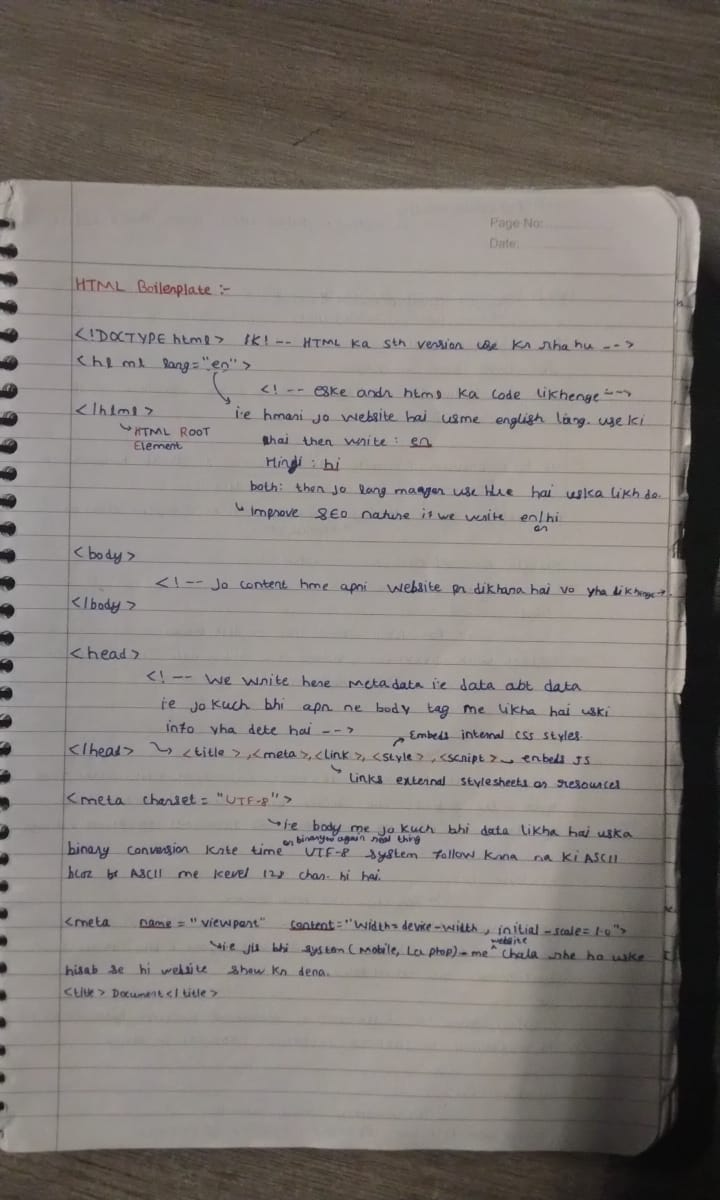 Page No:
Date:
HTML Boilerplate :-
<!DOCTYPE html> <! -- HTML Ka 5th version use kr rha hu -->
<html lang="en">
<! -- eske andr html ka code likhenge -->
</html> i.e hmari jo website hai usme english lang. use ki
HTML ROOT Element
rhai then write : en
Hindi : hi
both: then jo lang maager use hue hai uska likh do.
Improve SEO nature if we write en/hi
or
<body>
<! -- Jo content hme apni website pr dikhana hai vo yha likhenge ->
</body>
<head>
<! -- We write here metadata i.e data abt data
i.e jo kuch bhi apn ne body tag me likha hai uski
info yha dete hai -->
Embeds internal css styles
</head> <title>, <meta>, <link>, <style>, <script> embeds JS
Links external stylesheets or resources
<meta charset = "UTF-8">
i.e body me jo kuch bhi data likha hai uska
or binary to again real thing
binary conversion krte time UTF-8 system follow krna na ki ASCII
bcoz ASCII me kevel 128 char. hi hai.
<meta name = "viewport" content="width=device-width, initial-scale=1.0">
website
i.e jis bhi system (Mobile, Laptop) me chala rhe ho uske
hisab se hi website show kr dena.
<title> Document </title>